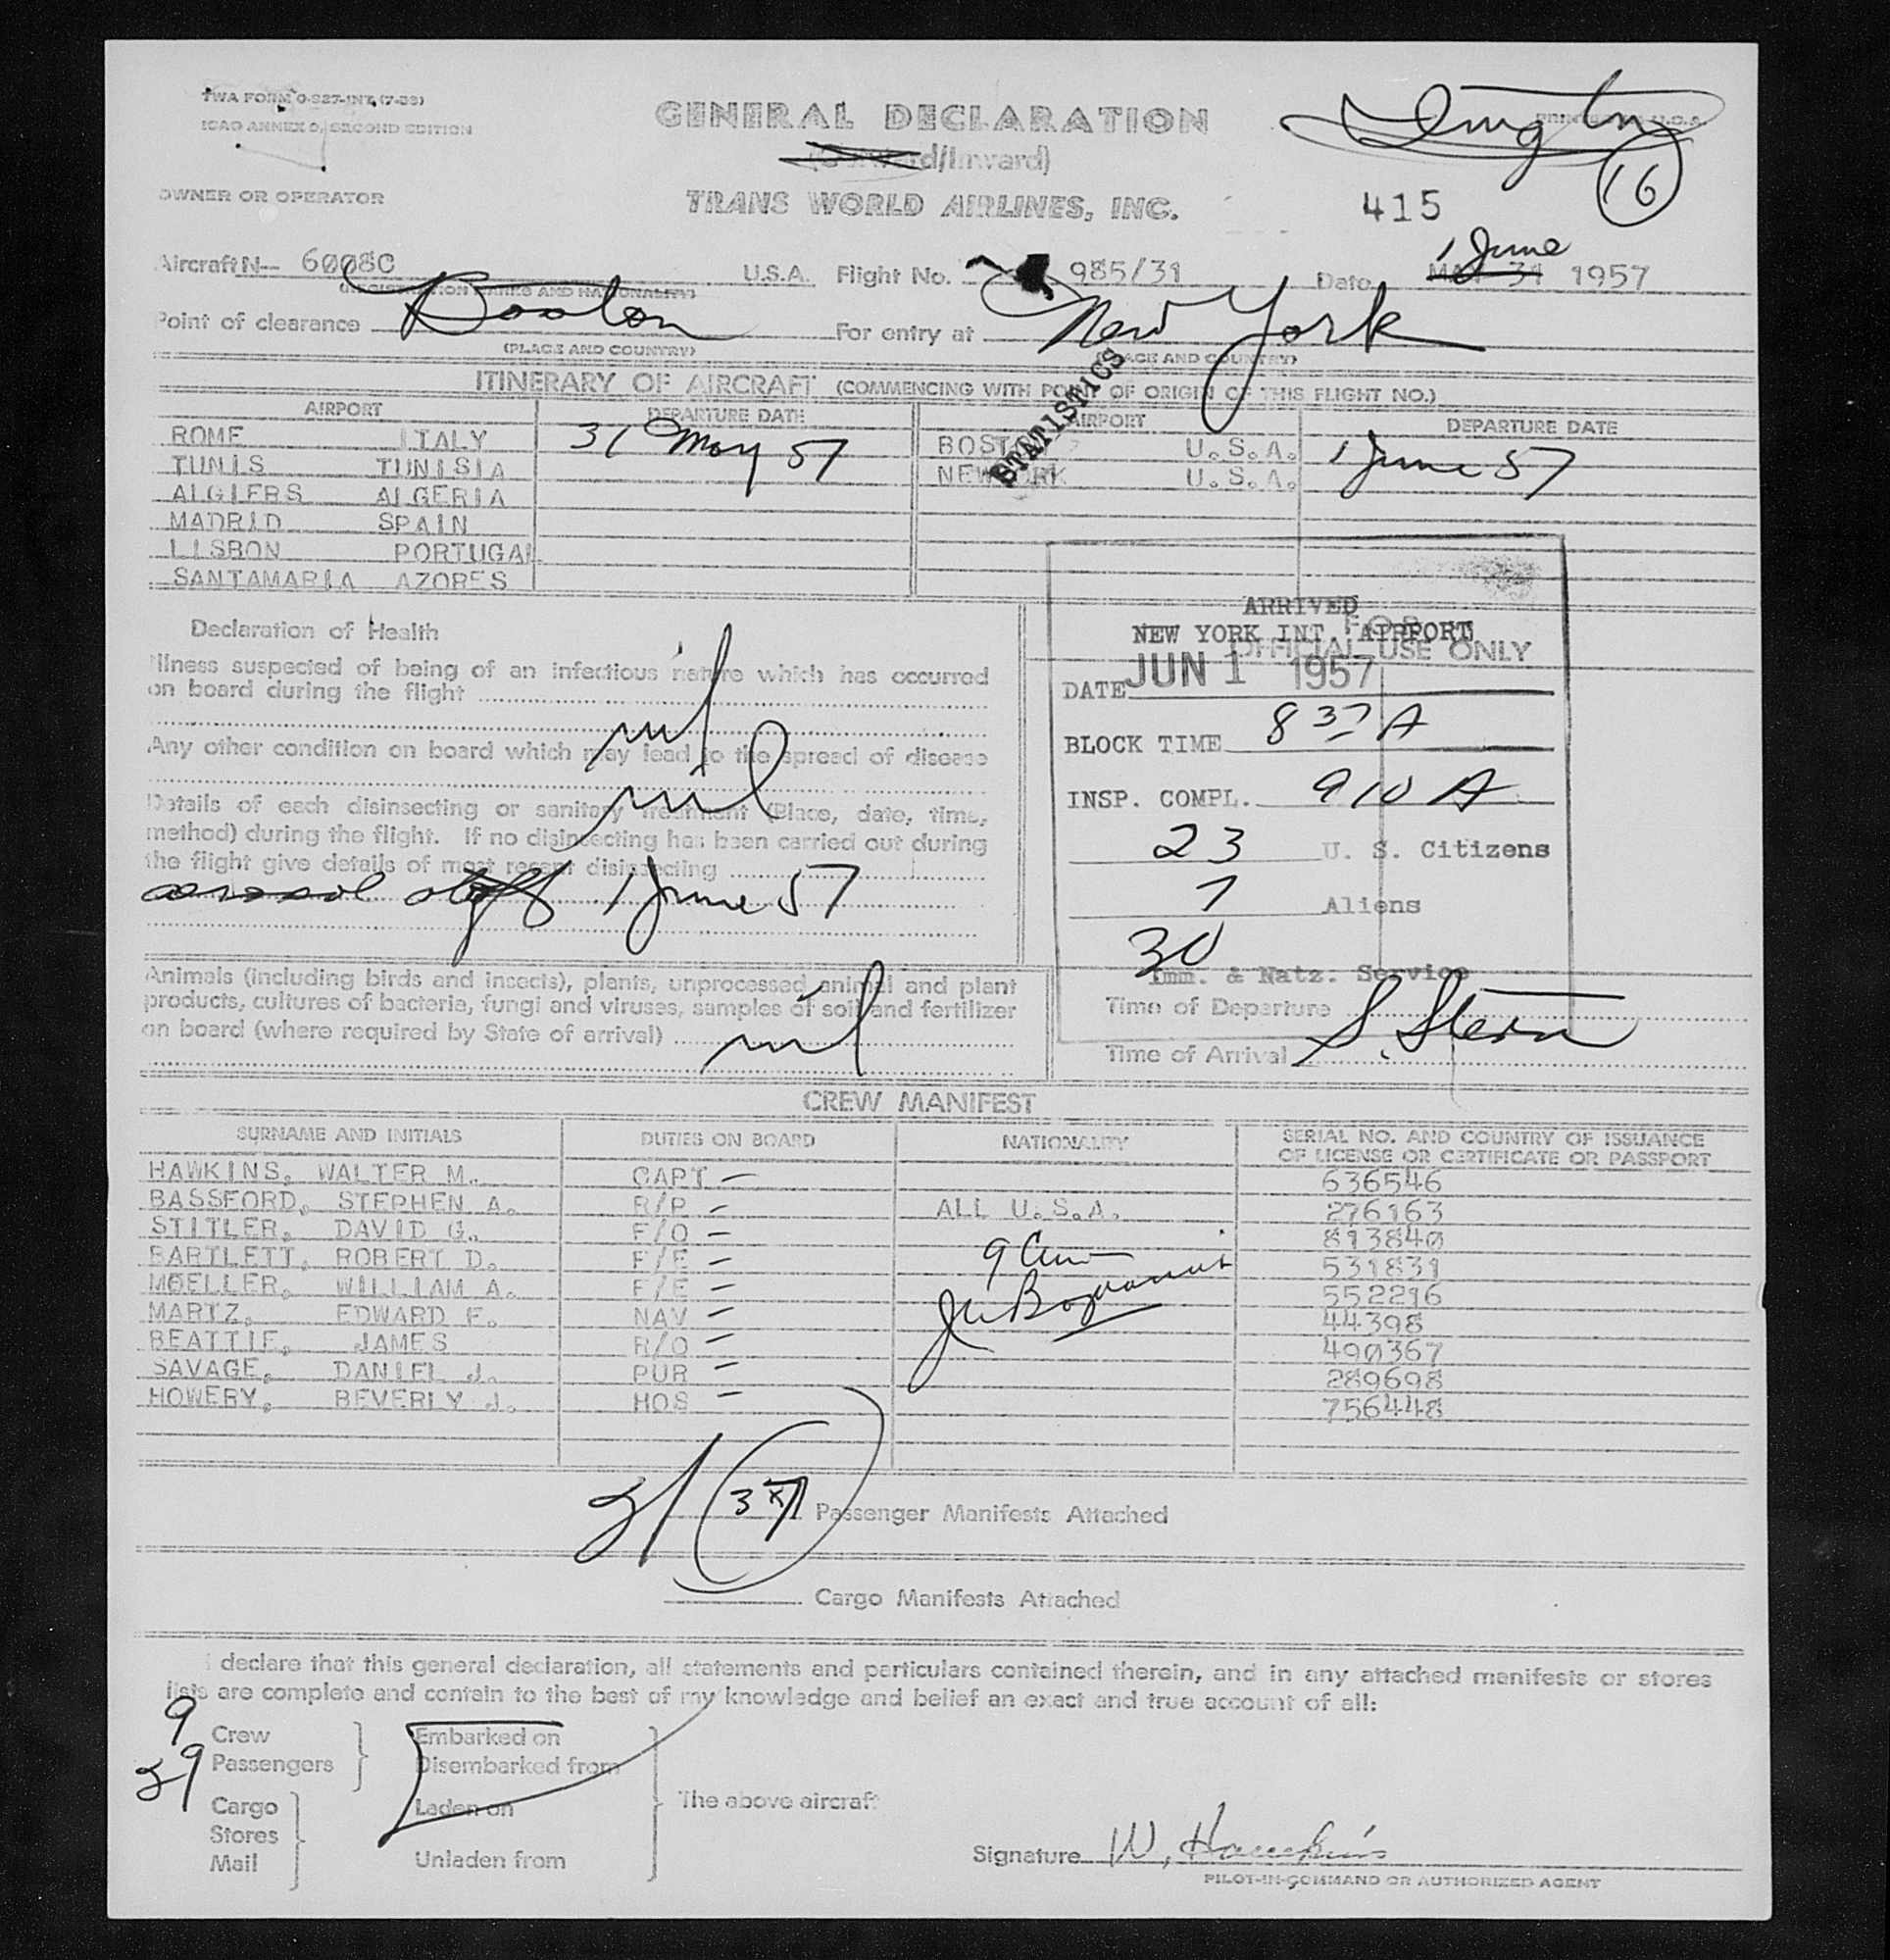 TWA FORM O-927-INT. (7-53)
ICAO ANNEX 9, SECOND EDITION
GENERAL DECLARATION
PRINTED IN U.S.A.
(Outward/Inward)
16
OWNER OR OPERATOR
TRANS WORLD AIRLINES, INC.
415
1 June
Aircraft N— 6008C U.S.A. Flight No. 985/31 Date MAY 31 1957
(REGISTRATION MARKS AND NATIONALITY)
Point of clearance Boston For entry at New York
(PLACE AND COUNTRY) (PLACE AND COUNTRY)
STATISTICS
ITINERARY OF AIRCRAFT (COMMENCING WITH POINT OF ORIGIN OF THIS FLIGHT NO.)
AIRPORT DEPARTURE DATE AIRPORT DEPARTURE DATE
ROME ITALY 31 May 57 BOSTON U.S.A. 1 June 57
TUNIS TUNISIA NEW YORK U.S.A.
ALGIERS ALGERIA
MADRID SPAIN
LISBON PORTUGAL
SANTAMARIA AZORES
Declaration of Health
Illness suspected of being of an infectious nature which has occurred
on board during the flight
nil
Any other condition on board which may lead to the spread of disease
nil
Details of each disinsecting or sanitary treatment (Place, date, time,
method) during the flight. If no disinsecting has been carried out during
the flight give details of most recent disinsecting
aerosol 1 June 57
Animals (including birds and insects), plants, unprocessed animal and plant
products, cultures of bacteria, fungi and viruses, samples of soil and fertilizer
on board (where required by State of arrival)
nil
FOR
OFFICIAL USE ONLY
ARRIVED
NEW YORK INT. AIRPORT
DATE JUN 1 1957
BLOCK TIME 837 A
INSP. COMPL. 910 A
23 U. S. Citizens
7 Aliens
30
Imm. & Natz. Service
Time of Departure
S. Stern
Time of Arrival
CREW MANIFEST
SURNAME AND INITIALS DUTIES ON BOARD NATIONALITY SERIAL NO. AND COUNTRY OF ISSUANCE
OF LICENSE OR CERTIFICATE OR PASSPORT
HAWKINS, WALTER M. CAPT — 636546
BASSFORD, STEPHEN A. R/P — ALL U.S.A. 276163
STITLER, DAVID G. F/O — 813840
BARTLETT, ROBERT D. F/E — 531831
MOELLER, WILLIAM A. F/E — 552216
MARTZ, EDWARD F. NAV — 44398
BEATTIE, JAMES R/O — 490367
SAVAGE, DANIEL J. PUR — 289698
HOWERY, BEVERLY J. HOS — 756448
Passenger Manifests Attached
Cargo Manifests Attached
I declare that this general declaration, all statements and particulars contained therein, and in any attached manifests or stores
lists are complete and contain to the best of my knowledge and belief an exact and true account of all:
9 Crew Embarked on
29 Passengers Disembarked from
Cargo Laden on The above aircraft
Stores
Mail Unladen from
Signature W. Hawkins
PILOT-IN-COMMAND OR AUTHORIZED AGENT